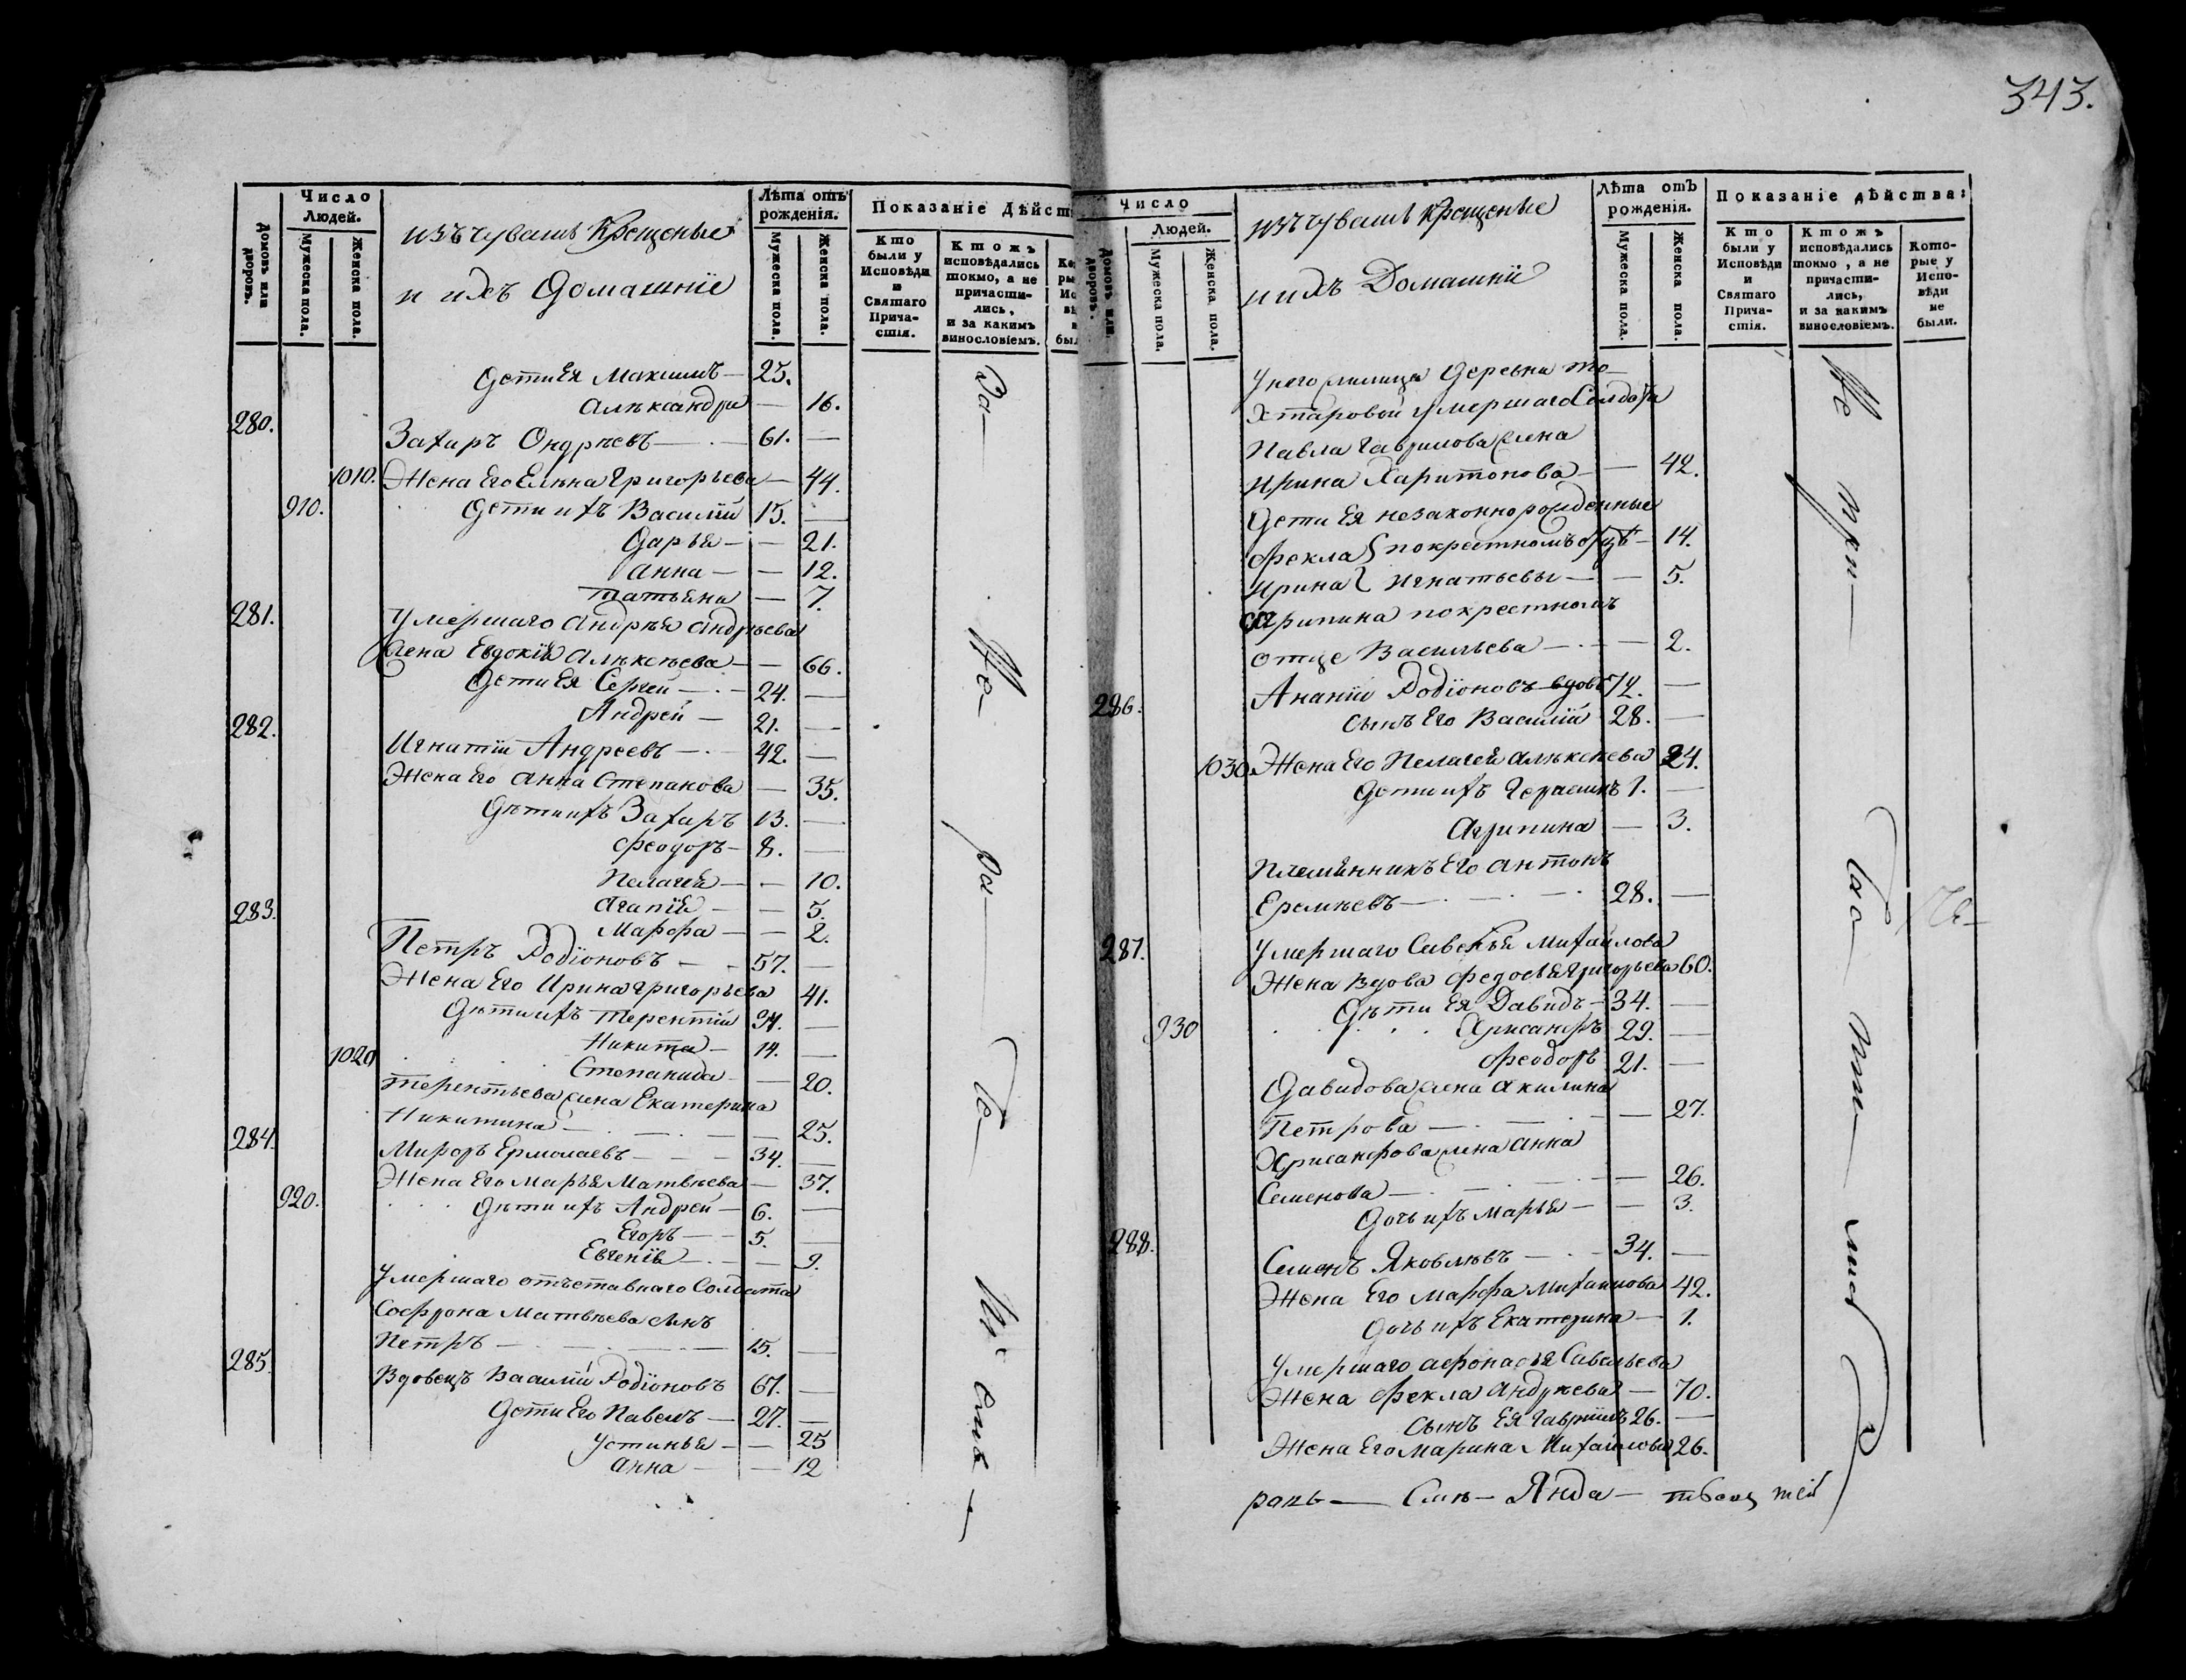 343.
Число
Людей.
Домовъ или дворовъ.
Мужеска пола.
Женска пола.
изъ чувашъ Крещеные
и ихъ Домашніе
Лѣта отъ рожденія.
Мужеска пола.
Женска пола.
Показаніе Дѣйст
Кто были у Исповѣди и Святаго Прича-стія.
Ктожъ исповѣдались токмо, а не причасти-лись, и за какимъ винословіемъ.
Дети Ея Максимъ — 25.
Александра — 16.
280. Захаръ Ондрѣевъ — 61. —
1010. Жена Его Елѣна Григорьева — 44.
910. Дети ихъ Василій 15. —
Дарья — — 21.
Анна — — 12.
Татьяна — 7.
281. Умершаго Андрѣя Андрѣева
жена Евдокія Алѣксѣева — — 66.
Дети Ея Сергей — 24. —
Андрей — 21. —
282. Игнатій Андреевъ — 42. —
Жена Его Анна Степанова — 35.
Дѣти ихъ Захаръ 13. —
Феодоръ — 8. —
Пелагея — — 10.
Агапія — — 5.
Марфа — — 2.
283. Петръ Родіоновъ — 57. —
Жена Его Ирина Григорьева 41.
Дѣти ихъ Терентій 24. —
Никита — 14. —
1020 Степанида — 20.
Терентьева жена Екатерина
Никитина — 25.
284. Миронъ Ермолаевъ — 34. —
Жена Его Марья Матвѣева — 37.
920. Дѣти ихъ Андрей — 6. —
Егоръ — 5. —
Евгенія — — 9.
Умершаго отъставнаго Солдата
Софрона Матвѣева сынъ
Петръ — 15. —
285. Вдовецъ Василій Родіоновъ 67. —
Дети Его Павелъ — 27. —
Устинья — — 25
Анна — — 12
Число
Людей.
Домовъ или дворовъ.
Мужеска пола.
Женска пола.
изъ чувашъ крещеные
и ихъ Домашніи
Лѣта отъ рожденія.
Мужеска пола.
Женска пола.
Показаніе дѣйства:
Кто были у Исповѣди и Святаго Прича-стія.
Ктожъ исповѣдались токмо, а не причасти-лись, и за какимъ винословіемъ.
Кото-рые у Испо-вѣди не были.
У него деревни
умершаго Солдата
Павла Гаврилова жена
Ирина Харитонова — — 42.
Дети Ея незаконно рожденные
Фекла по крестномъ отцѣ — 14.
Ирина Игнатьевы — — 5.
Агрипина по крестномъ
отце Васильева — — 2.
286. Ананій Родіоновъ вдовъ 72. —
сынъ Его Василій 28. —
1030. Жена Его Пелагея Алѣксѣева 24.
Дети ихъ Герасимъ 1. —
Агрипина — 3.
Племянникъ Его Антонъ
Еремѣевъ — 28. —
287. Умершаго Савелья Михайлова
Жена вдова Федосья Григорьева 60.
Дѣти Ея Давидъ — 34. —
930 Хрисанфъ 29. —
Феодоръ 21. —
Давидова жена Акилина
Петрова — 27.
Хрисанфова жена Анна
Семенова — 26.
Дочь ихъ Марья — — 3.
288. Семенъ Яковлѣвъ — 34. —
Жена Его Марфа Михайлова 42.
Дочь ихъ Екатерина — 1.
Умершаго Афонасья Савельева
Жена Фекла Андрѣева — 70.
сынъ Ея Гаврiилъ 26. —
Жена Его Марина Михайлова 26.